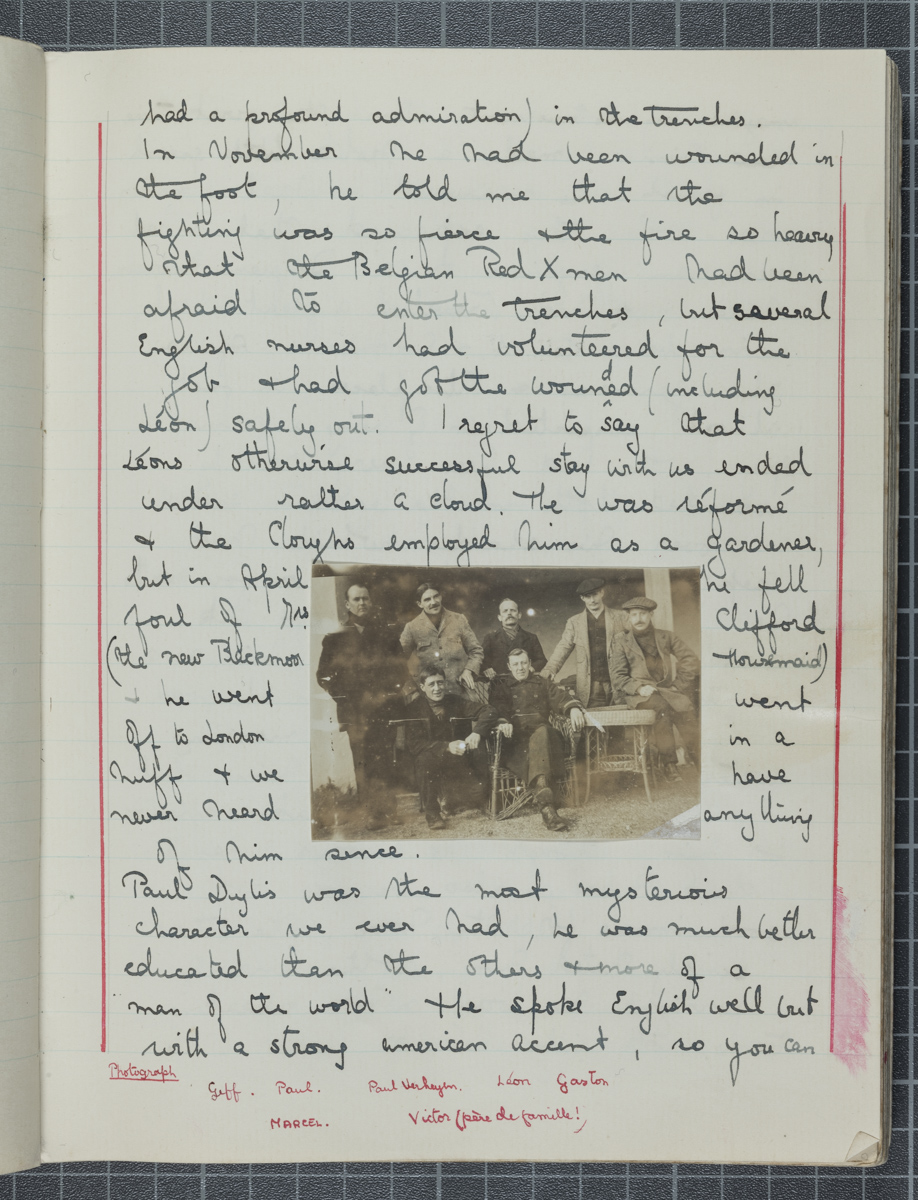 had a profound admiration) in the trenches.
In November he had been wounded in
the foot, he told me that the
fighting was so fierce & the fire so heavy
that the Belgian Red X men had been
afraid to enter the trenches, but several
English nurses had volunteered for the
job & had got the wounded (including
Léon) safely out. I regret to say that
Léons otherwise successful stay with us ended
under rather a cloud. He was réformé
& the Cloughs employed him as a gardener,
but in April he fell
foul of Mrs Clifford
(the new Backmoor Housemaid)
& he went went
off to London in a
huff & we have
never heard anything
of him since.
Paul Dylis was the most mysterious
character we ever had, he was much better
educated than the others & more of a
"man of the world" He spoke English well but
with a strong american accent, so you can
Photograph
Geff. Paul. Paul Verheym. Léon Gaston
MARCEL. Victor (père de famille!)